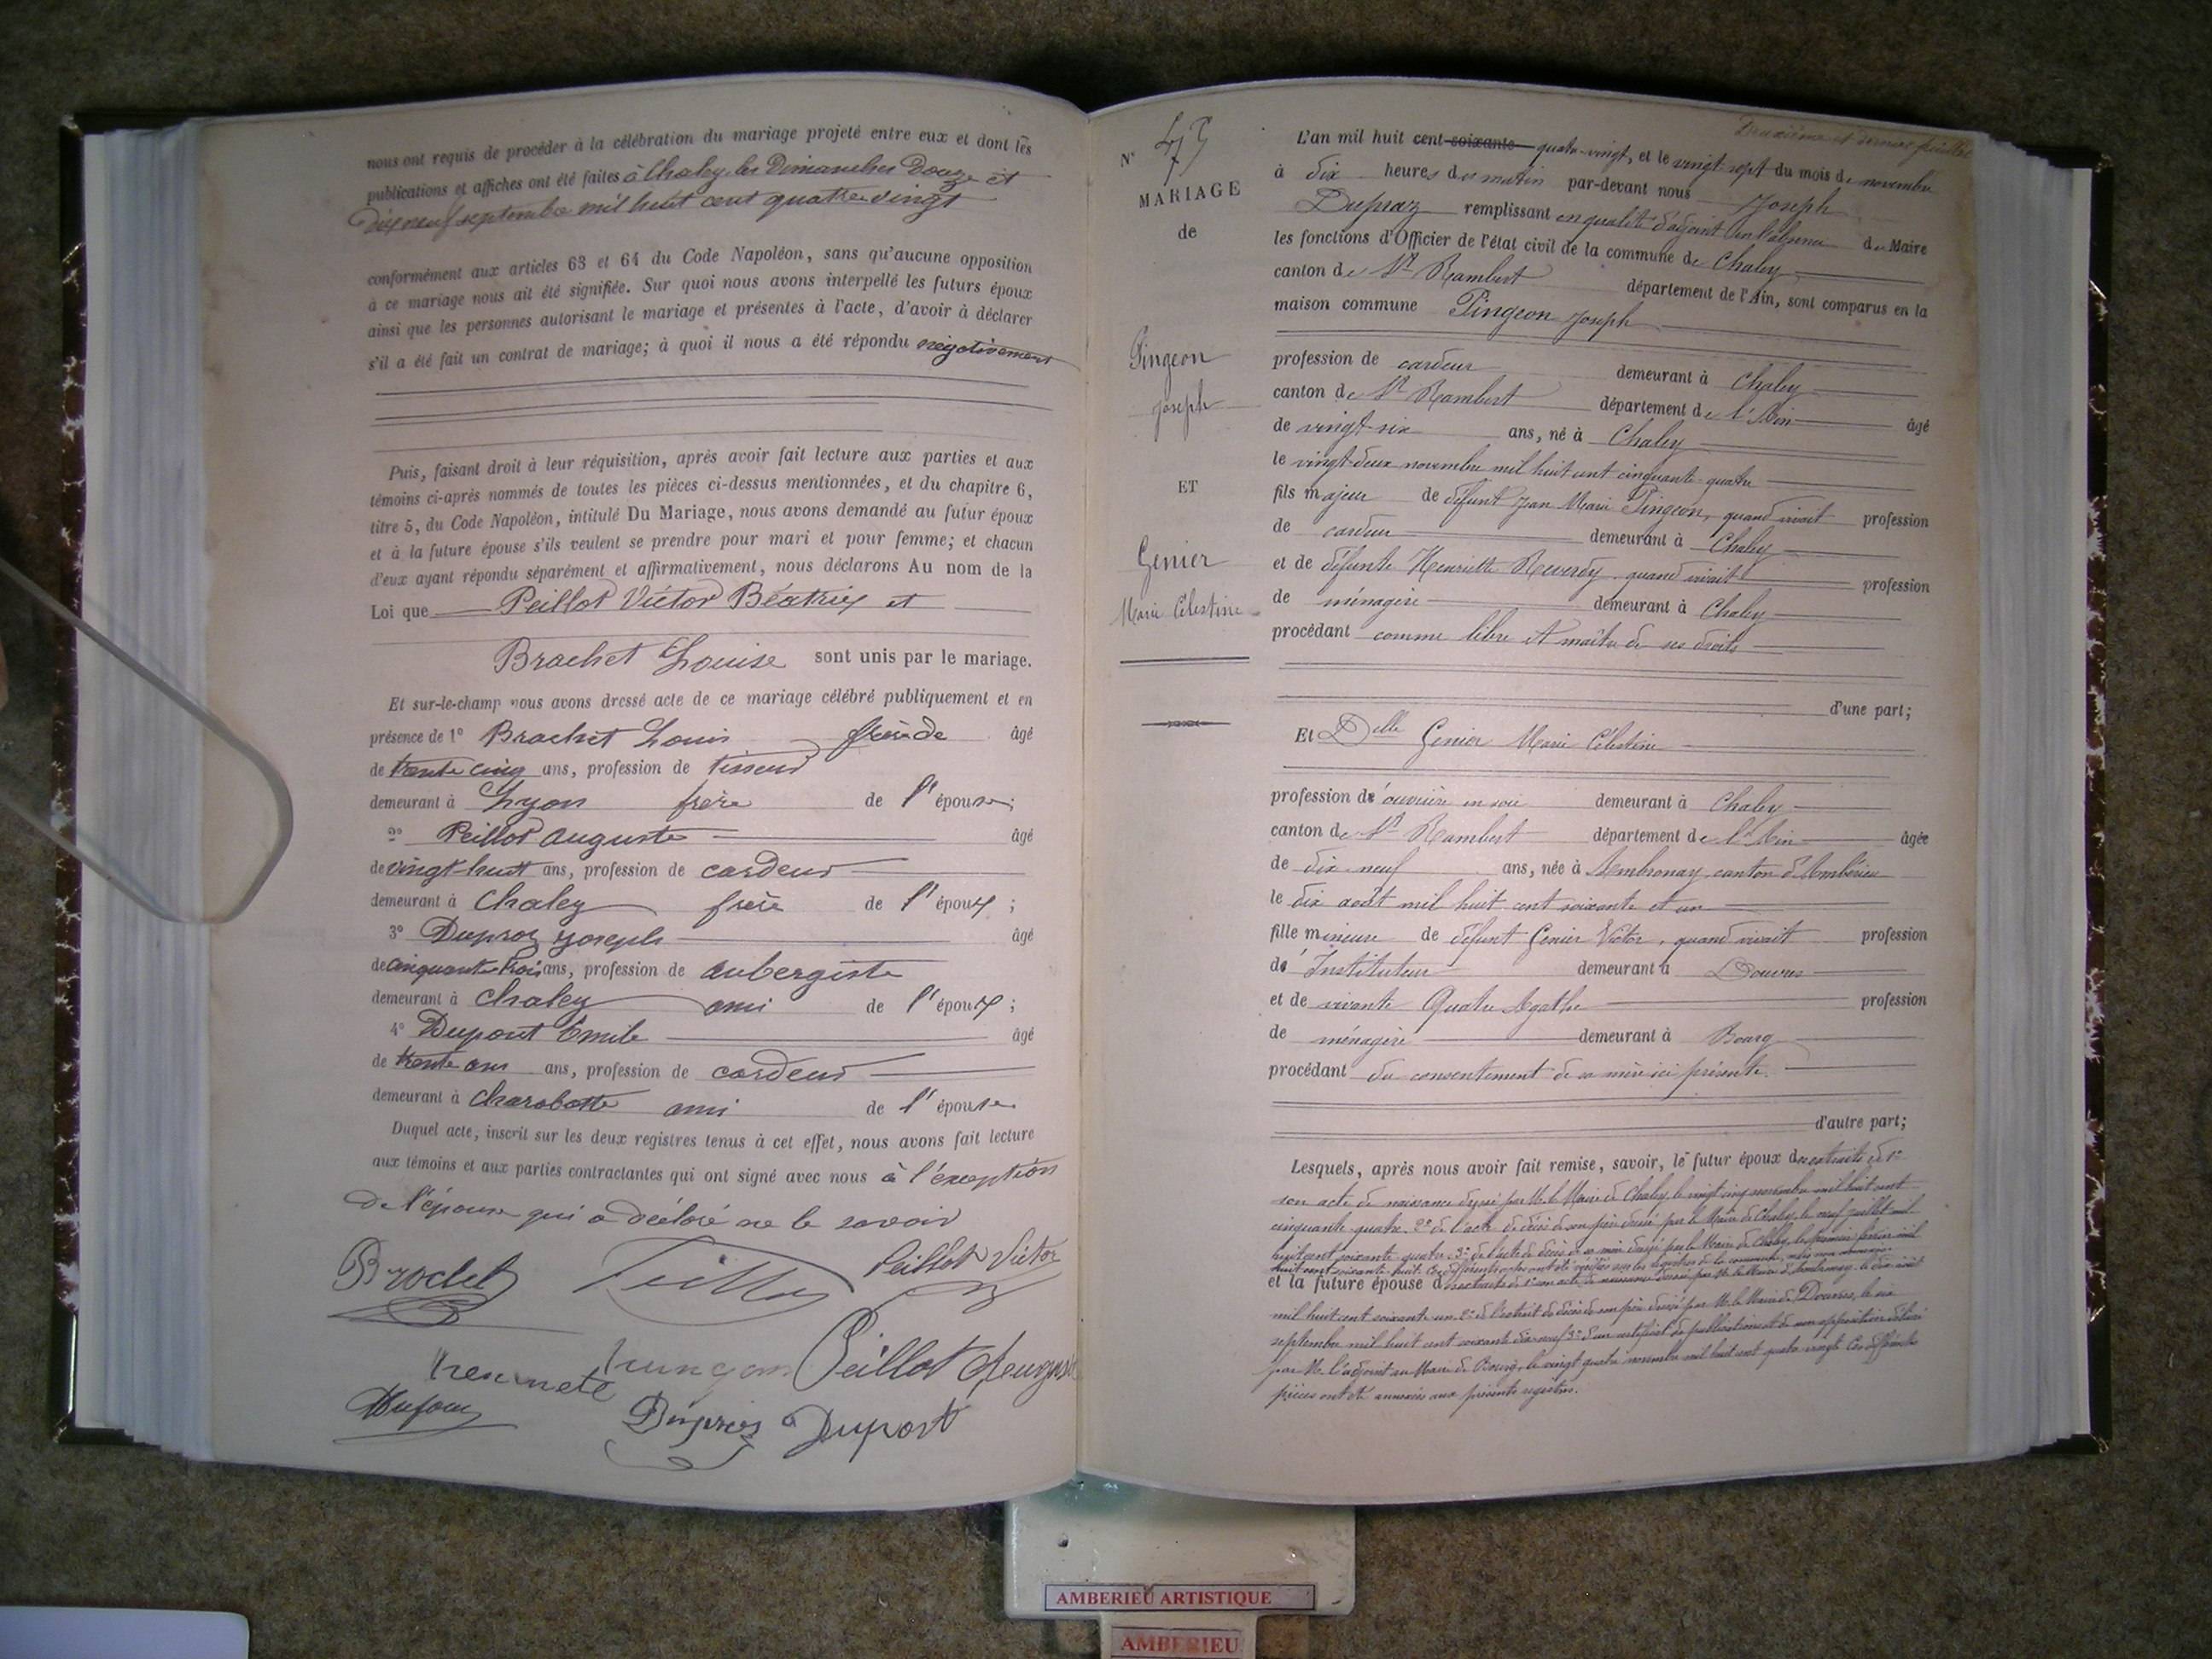 nous ont requis de procéder à la célébration du mariage projeté entre eux et dont les
publications et affiches ont été faites à Chaley les Dimanches Douze et
Dix neuf septembre mil huit cent quatre vingt
conformément aux articles 63 et 64 du Code Napoléon, sans qu'aucune opposition
à ce mariage nous ait été signifiée. Sur quoi nous avons interpellé les futurs époux
ainsi que les personnes autorisant le mariage et présentes à l'acte, d'avoir à déclarer
s'il a été fait un contrat de mariage; à quoi il nous a été répondu négativement
Puis, faisant droit à leur réquisition, après avoir fait lecture aux parties et aux
témoins ci-après nommés de toutes les pièces ci-dessus mentionnées, et du chapitre 6,
titre 5, du Code Napoléon, intitulé Du Mariage, nous avons demandé au futur époux
et à la future épouse s'ils veulent se prendre pour mari et pour femme; et chacun
d'eux ayant répondu séparément et affirmativement, nous déclarons Au nom de la
Loi que Peillot Victor Béatrix et
Brachet Louise sont unis par le mariage.
Et sur-le-champ nous avons dressé acte de ce mariage célébré publiquement et en
présence de 1° Brachet Louis âgé
de trente cinq ans, profession de tisseur
demeurant à Lyon frère de l'épouse;
2° Peillot Auguste âgé
de vingt-huit ans, profession de cardeur
demeurant à Chaley frère de l'époux;
3° Dupraz Joseph âgé
de cinquante trois ans, profession de aubergiste
demeurant à Chaley ami de l'époux;
4° Dupont Emile âgé
de trente ans ans, profession de cardeur
demeurant à Charabotte ami de l'épouse
Duquel acte, inscrit sur les deux registres tenus à cet effet, nous avons fait lecture
aux témoins et aux parties contractantes qui ont signé avec nous à l'exception
De l'épouse qui a déclaré ne le savoir
Brachet Peillot Peillot Victor
Peillot Auguste
Dufour Dupraz Dupont
Deuxième et dernier feuillet
N° 47
MARIAGE
de
Pingeon
Joseph
ET
Genier
Marie Célestine
L'an mil huit cent soixante quatre-vingt, et le vingt-sept du mois de novembre
à dix heures du matin par-devant nous Joseph
Dupraz remplissant en qualité d'adjoint en l'absence du Maire
les fonctions d'Officier de l'état civil de la commune de Chaley
canton de St Rambert département de l'Ain, sont comparus en la
maison commune Pingeon Joseph
profession de cardeur demeurant à Chaley
canton de St Rambert département de l'Ain âgé
de vingt-six ans, né à Chaley
le vingt-deux novembre mil huit cent cinquante-quatre
fils majeur de défunt Jean Marie Pingeon, quand vivait profession
de cardeur demeurant à Chaley
et de défunte Henriette Reverdy, quand vivait profession
de ménagère demeurant à Chaley
procédant comme libre et maître de ses droits
d'une part;
Et Delle Genier Marie Célestine
profession d'ouvrière en soie demeurant à Chaley
canton de St Rambert département de l'Ain âgée
de dix-neuf ans, née à Ambronay, canton d'Ambérieu
le dix août mil huit cent soixante et un
fille mineure de défunt Genier Victor, quand vivait profession
d'Instituteur demeurant à Douvres
et de vivante Quatre Agathe profession
de ménagère demeurant à Bourg
procédant du consentement de sa mère ici présente.
d'autre part;
Lesquels, après nous avoir fait remise, savoir, le futur époux des extraits de 1°
son acte de naissance dressé par M. le Maire de Chaley, le vingt cinq novembre mil huit cent
cinquante quatre. 2° de l'acte de décès de son père dressé par le Maire de Chaley, le neuf juillet mil
huit cent soixante quatre. 3° de l'acte de décès de sa mère dressé par le Maire de Chaley, le premier février mil
huit cent soixante huit. registres de la commune, mais non annexées
et la future épouse des extraits de 1° son acte de naissance dressé par M. le Maire d'Ambronay, le dix août
mil huit cent soixante un. 2° de l'extrait de décès de son père dressé par M. le Maire de Douvres, le six
septembre mil huit cent soixante dix-neuf 3° d'un certificat de publications et de non opposition délivré
par M. l'adjoint au Maire de Bourg, le vingt quatre novembre mil huit cent quatre vingt. Ces différentes
pièces ont été annexées aux présents registres.
AMBERIEU ARTISTIQUE
AMBERIEU